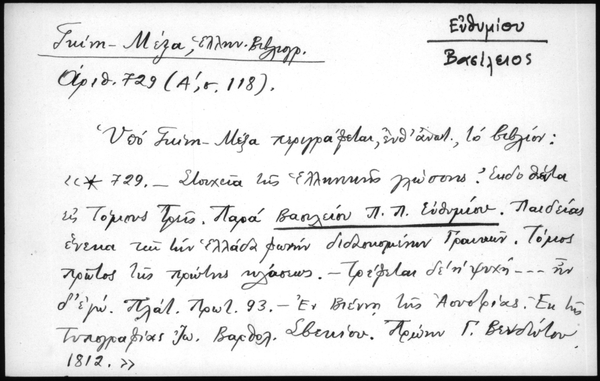 Γκίνη - Μέξα, Ἑλλην. Βιβλιογρ.
Εὐθυμίου
Βασίλειος
Ἀριθ. 729 (Α', σ. 118).
Ὑπό Γκίνη - Μέξα περιγράφεται, ἐνθ' ἀνωτ., τό βιβλίον:
«* 729. — Στοιχεῖα τῆς Ἑλληνικῆς γλώσσης. Ἐκδοθέντα
εἰς Τόμους Τρεῖς. Παρά Βασιλείου Π. Π. Εὐθυμίου. Παιδείας
ἕνεκα τῶν τήν Ἑλλάδα φωνήν διδασκομένων Γραικῶν. Τόμος
πρῶτος τῆς πρώτης κλάσεως. — Τρέφεται δέ ἡ ψυχή --- ἦν
δ' ἐγώ. Πλάτ. Πρωτ. 93. — Ἐν Βιέννῃ τῆς Αουστρίας. Ἐκ τῆς
Τυπογραφίας Ἰω. Βαρθολ. Σβεκίου. Πρώην Γ. Βενδότου
1812. »